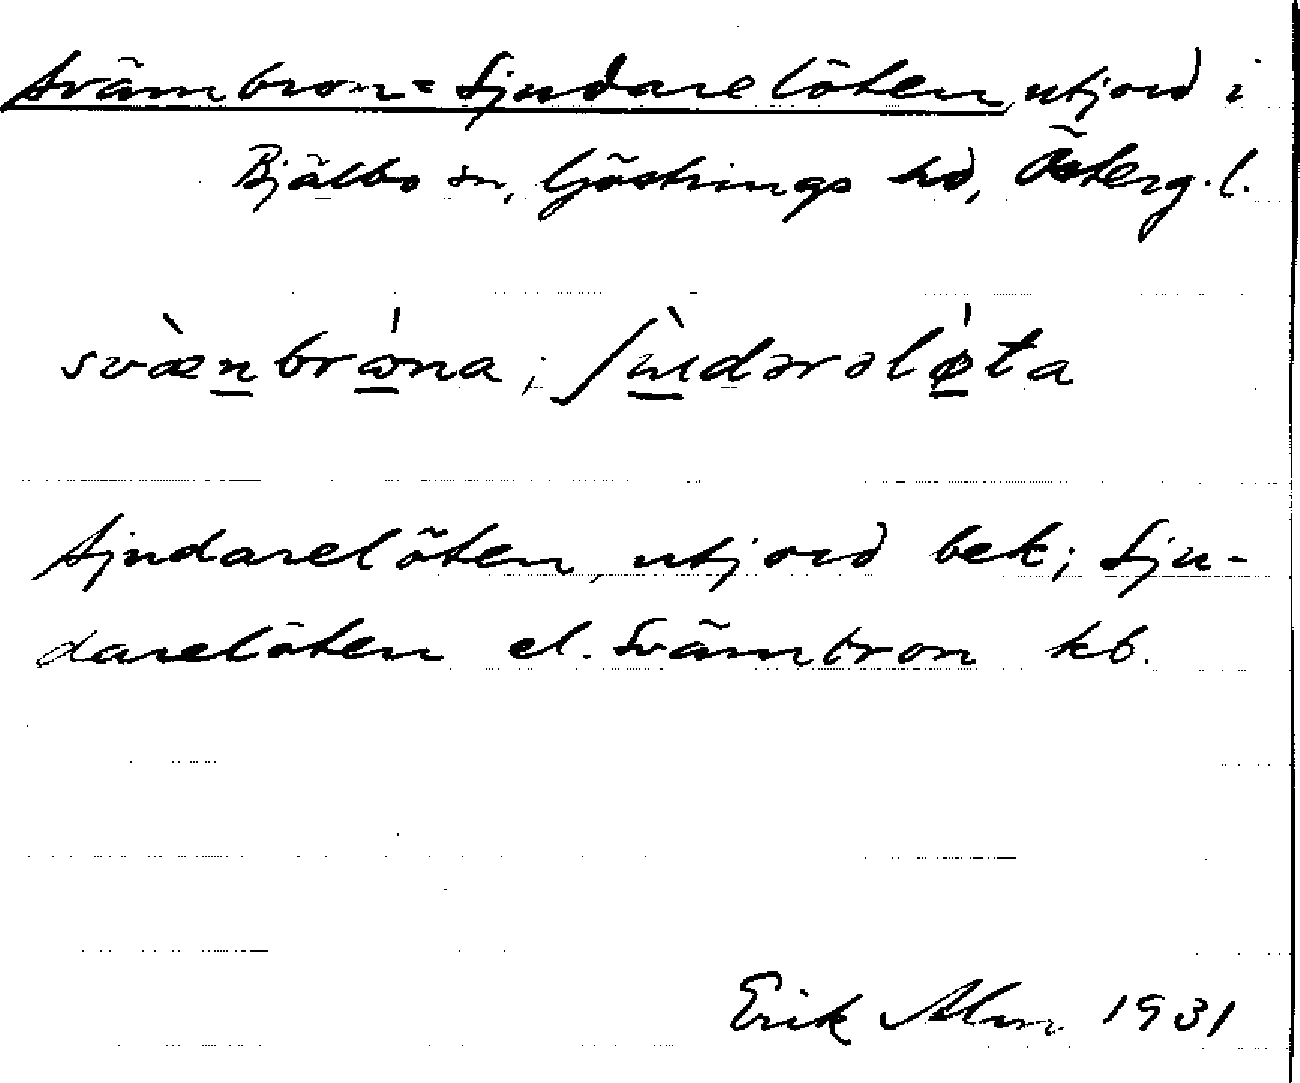 Svämbron = Sjudarelöten utjord i
Bjälbo sn, Göstrings hd, Österg.l.
svæ̀nbrω̍na; ʃùdərəlø̍ta
Sjudarelöten, utjord bek; Sju-
darelöten el. Svämbron kb.
Erik Alm 1931